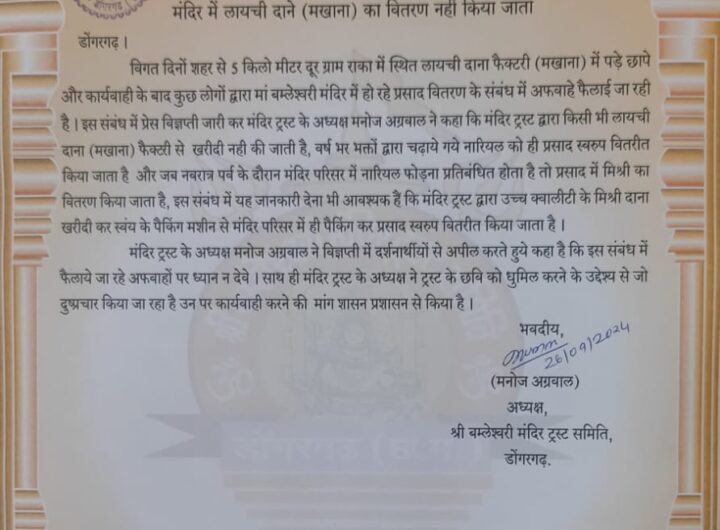 डोंगरगढ़
मंदिर में लायची दाने (मखाना) का वितरण नही किया जाता
डोंगरगढ़।
विगत दिनों शहर से 5 किलो मीटर दूर ग्राम राका में स्थित लायची दाना फैक्टरी (मखाना) में पड़े छापे
और कार्यवाही के बाद कुछ लोगों द्वारा मां बम्लेश्वरी मंदिर में हो रहे प्रसाद वितरण के संबंध में अफवाहे फैलाई जा रही
है। इस संबंध में प्रेस विज्ञप्ती जारी कर मंदिर ट्रस्ट के अध्यक्ष मनोज अग्रवाल ने कहा कि मंदिर ट्रस्ट द्वारा किसी भी लायची
दाना (मखाना) फैक्टी से खरीदी नही की जाती है, वर्ष भर भक्तों द्वारा चढ़ाये गये नारियल को ही प्रसाद स्वरुप वितरीत
किया जाता है और जब नवरात्र पर्व के दौरान मंदिर परिसर में नारियल फोड़ना प्रतिबंधित होता है तो प्रसाद में मिश्री का
वितरण किया जाता है, इस संबंध में यह जानकारी देना भी आवश्यक हैं कि मंदिर ट्रस्ट द्वारा उच्च क्वालीटी के मिश्री दाना
खरीदी कर स्वंय के पैकिंग मशीन से मंदिर परिसर में ही पैकिंग कर प्रसाद स्वरुप वितरीत किया जाता है।
मंदिर ट्रस्ट के अध्यक्ष मनोज अग्रवाल ने विज्ञप्ती में दर्शनार्थीयों से अपील करते हुये कहा है कि इस संबंध में
फैलाये जा रहे अफवाहों पर ध्यान न देवे। साथ ही मंदिर ट्रस्ट के अध्यक्ष ने ट्रस्ट के छवि को धुमिल करने के उद्देश्य से जो
दुष्प्रचार किया जा रहा है उन पर कार्यवाही करने की मांग शासन प्रशासन से किया है।
भवदीय,
26/09/2024
(मनोज अग्रवाल)
अध्यक्ष,
श्री बम्लेश्वरी मंदिर ट्रस्ट समिति,
डोंगरगढ़.
डोंगरगढ़ (छ.ग.)